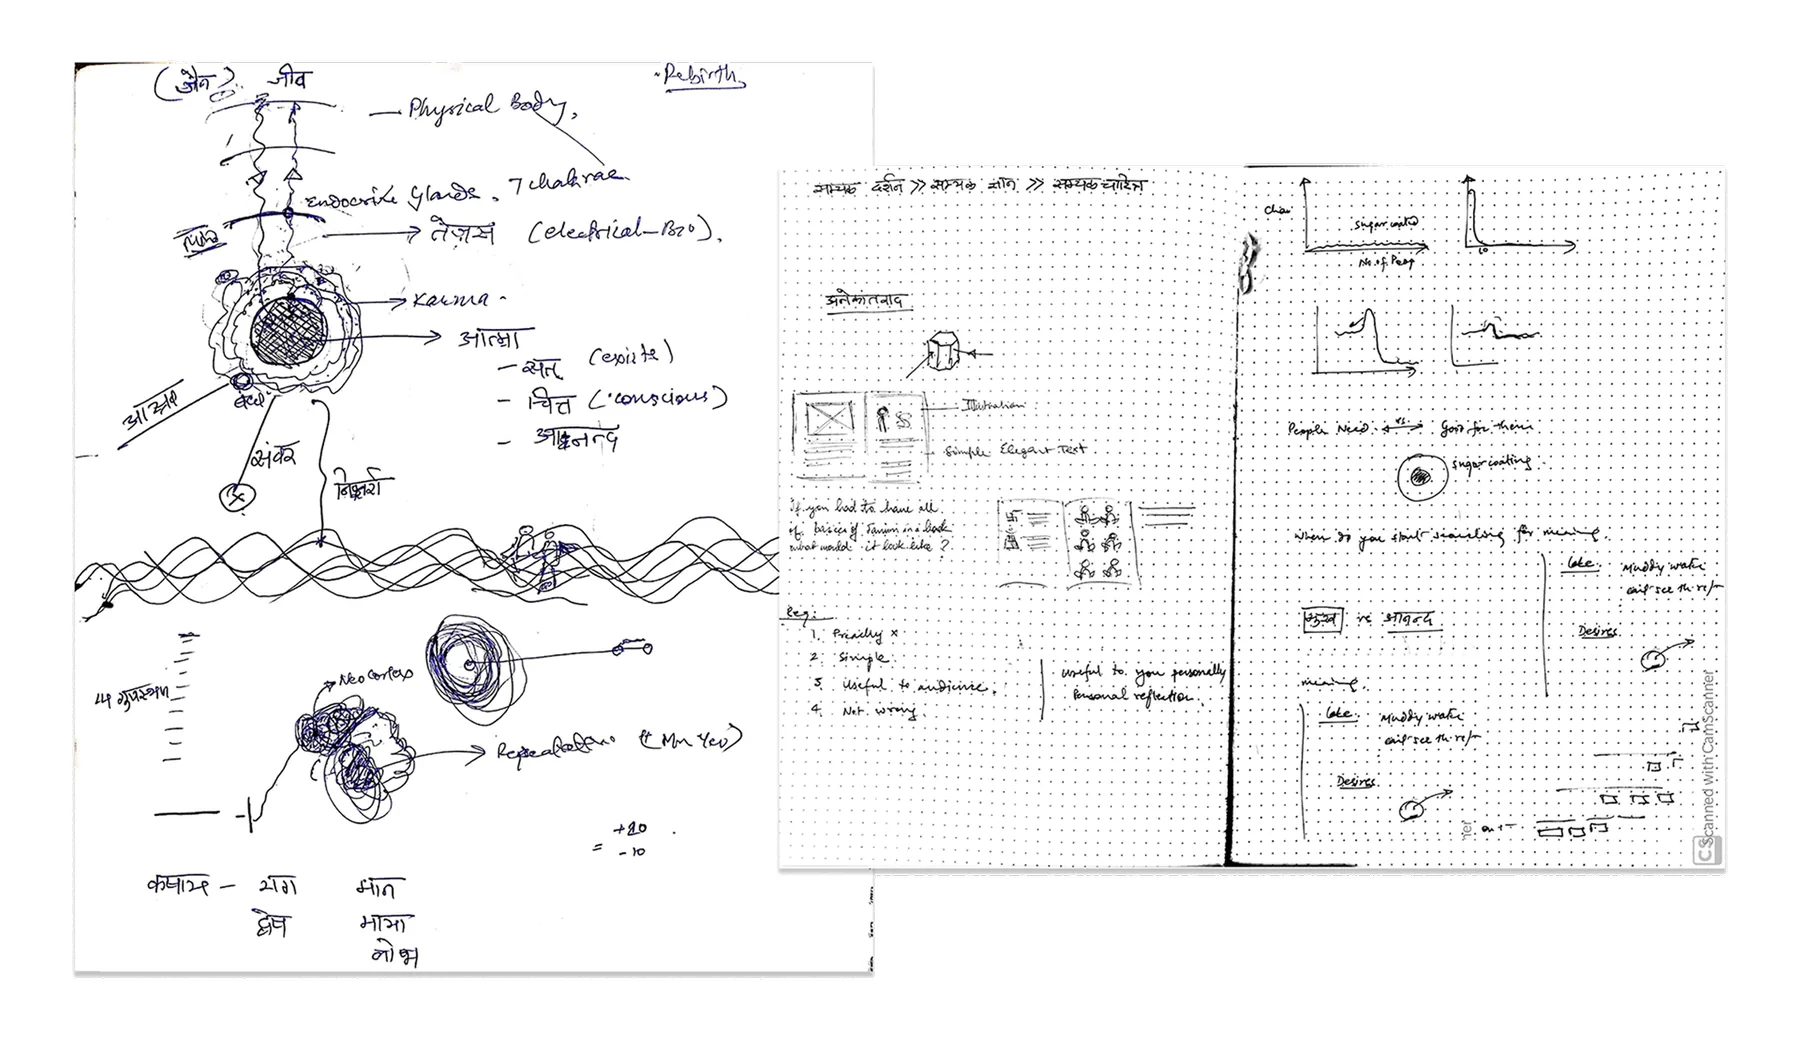 जीव
Rebirth
Physical Body,
Endocrine Glands, 7 chakras
तेजस (electrical-Bio).
Karma
आत्मा
- सत्
- चित्त (conscious)
- आनन्द
आस्रव
संवर
Neocortex
+20
= -10
कषाय - राग मान
द्वेष माया
लोभ
सम्यक दर्शन >> सम्यक ज्ञान >> सम्यक चारित्र
अनेकांतवाद
Illustration
Simple Elegant Text
if you had to have all
of basics of Jainism in a book
what would it look like ?
Req:
1. Preachy x
2. Simple
3. Useful to audience.
4. Not wrong.
useful to you personally
Personal reflection.
Sugar coated
No. of Peop
10
People Need vs. Good for them
Sugar coating.
When do you start searching for meaning.
सुख vs आनन्द
Lake. Muddy water
Desires
meaning.
Lake. Muddy water
Desires
Scanned with CamScanner
CS